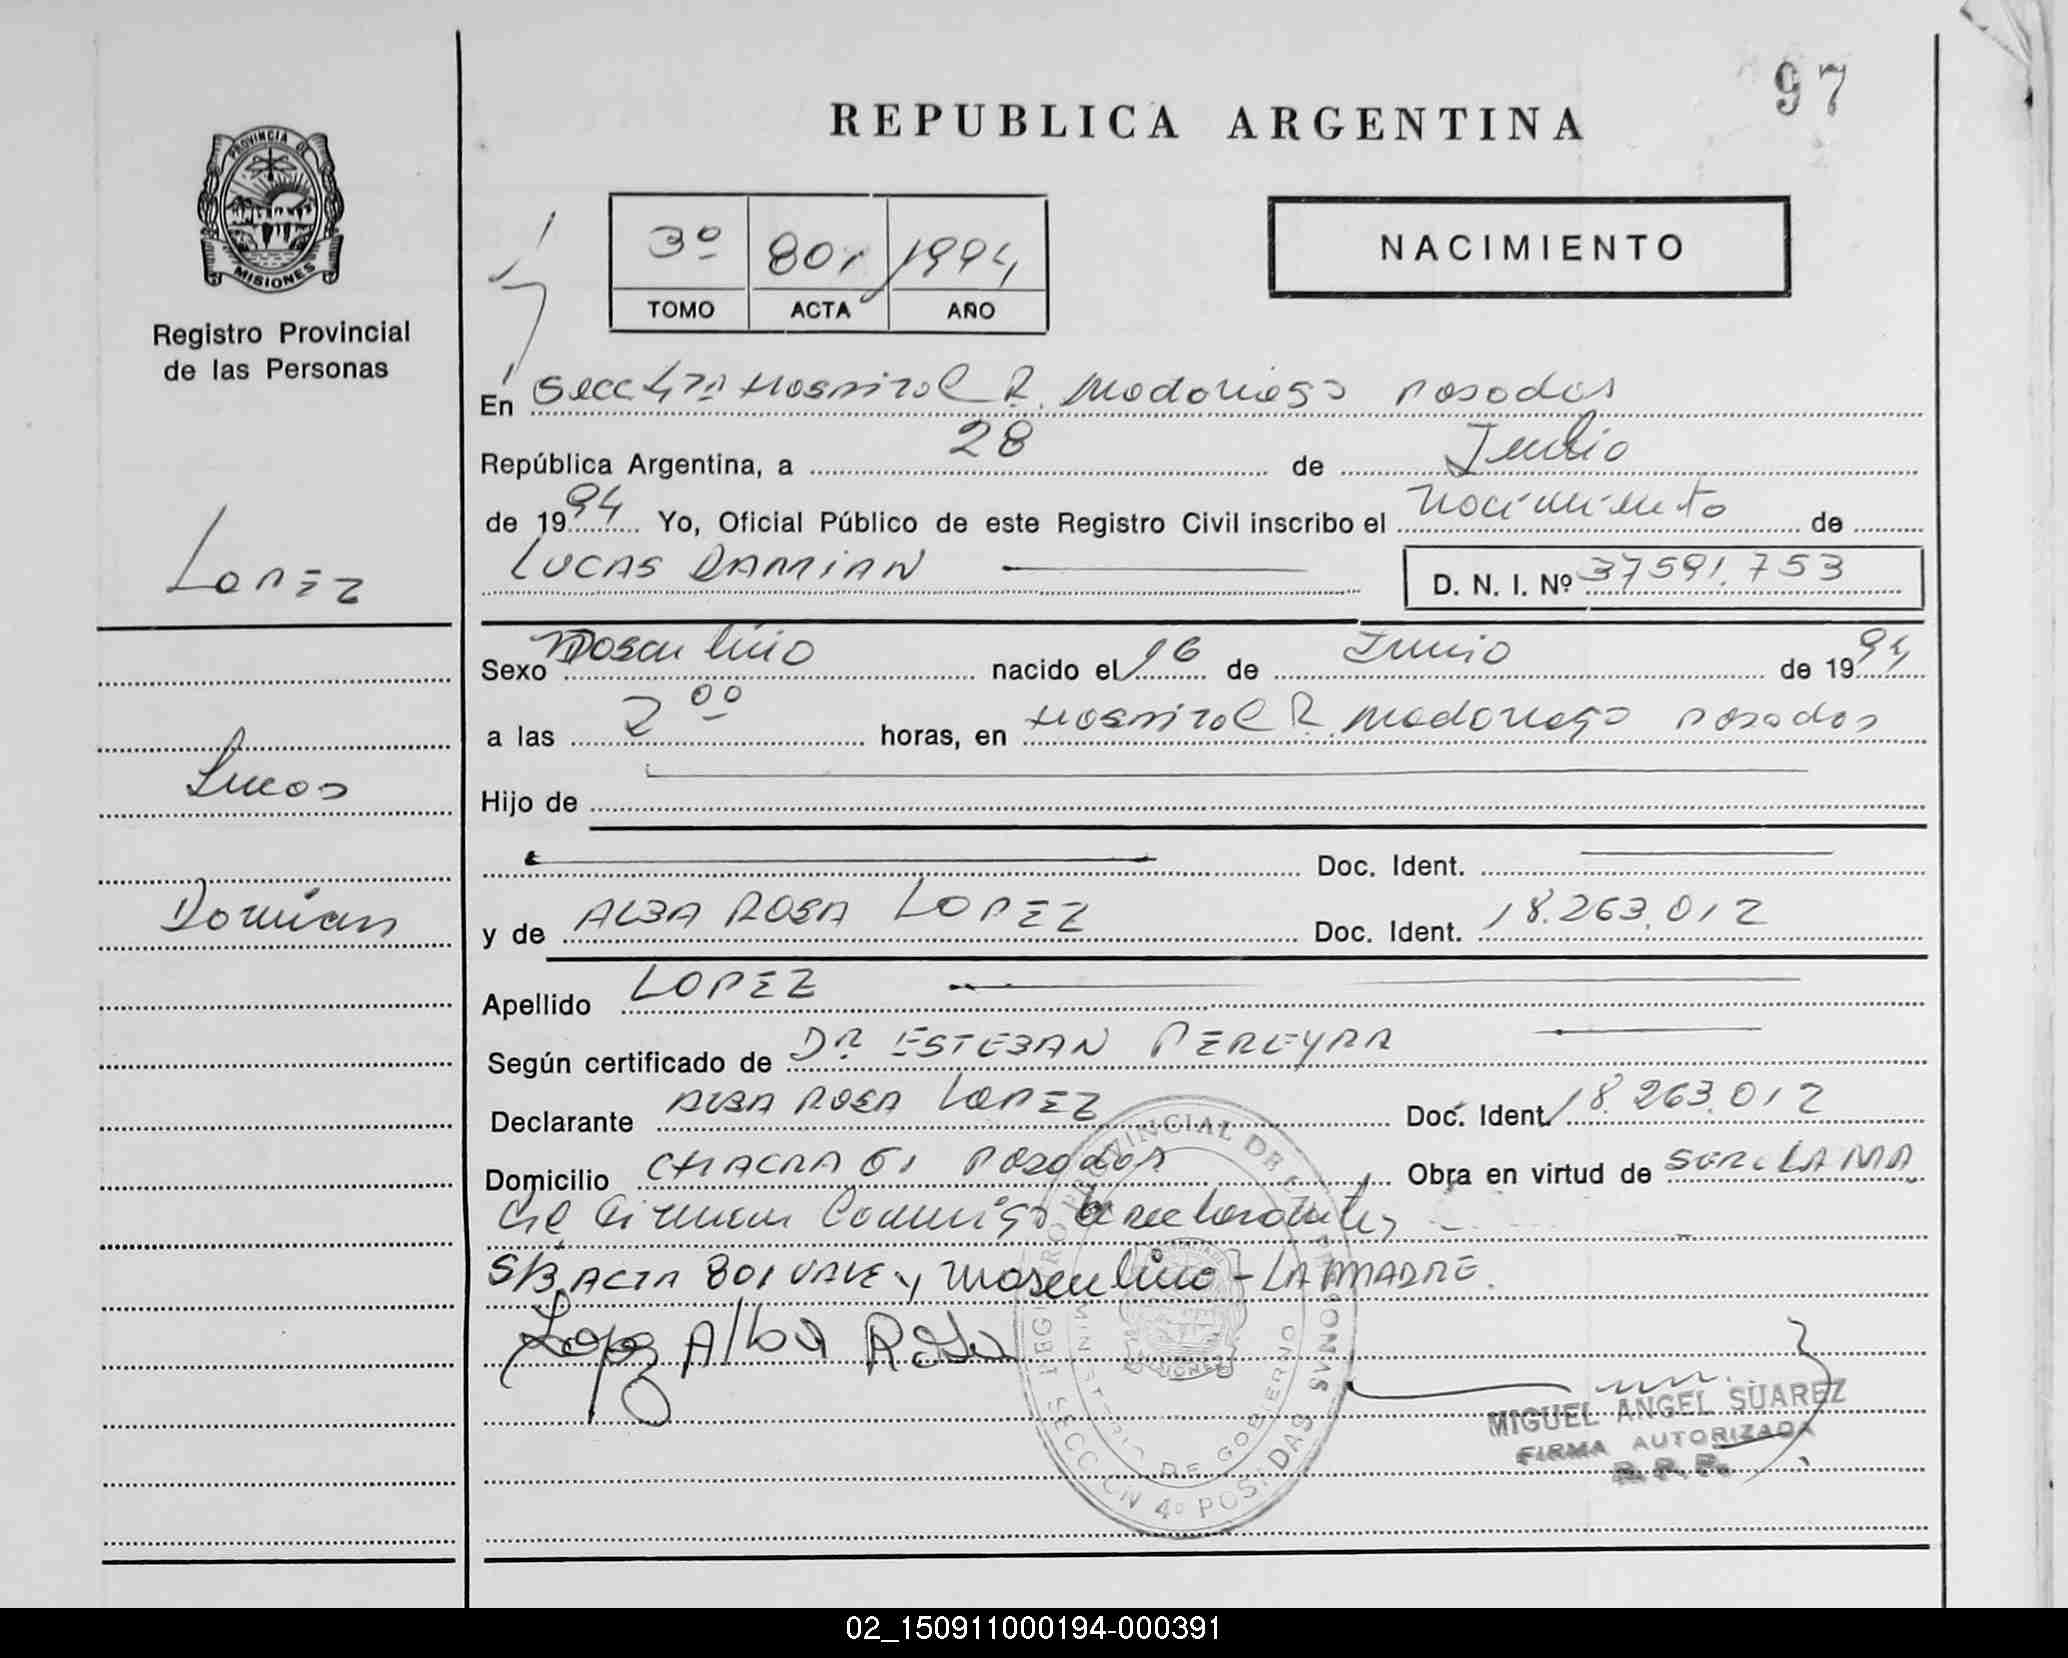 97
REPUBLICA ARGENTINA
PROVINCIA DE
MISIONES
Registro Provincial
de las Personas
3º 801 1994
TOMO ACTA AÑO
NACIMIENTO
En Secc 4ta Hospital R. Madariaga Posadas
República Argentina, a 28 de Julio
de 1994 Yo, Oficial Público de este Registro Civil inscribo el nacimiento de
LUCAS DAMIAN D. N. I. Nº 37591.753
LOPEZ
Sexo Masculino nacido el 16 de Junio de 1994
a las 2 00 horas, en Hospital R. Madariaga Posadas
Lucas
Hijo de
Doc. Ident.
Damian
y de ALBA ROSA LOPEZ Doc. Ident. 18.263.012
Apellido LOPEZ
Según certificado de DR ESTEBAN PEREYRA
Declarante ALBA ROSA LOPEZ Doc. Ident. 18.263.012
Domicilio CHACRA 61 Posadas Obra en virtud de SER LA MA
firman conmigo
S/B ACTA 801 VALE y Masculino - LA MADRE.
Lopez Alba Rosa
REGISTRO PROVINCIAL DE LAS PERSONAS
MINISTERIO DE GOBIERNO
SECCION 4º POSADAS
MIGUEL ANGEL SUAREZ
FIRMA AUTORIZADA
R. P. P.
02_150911000194-000391